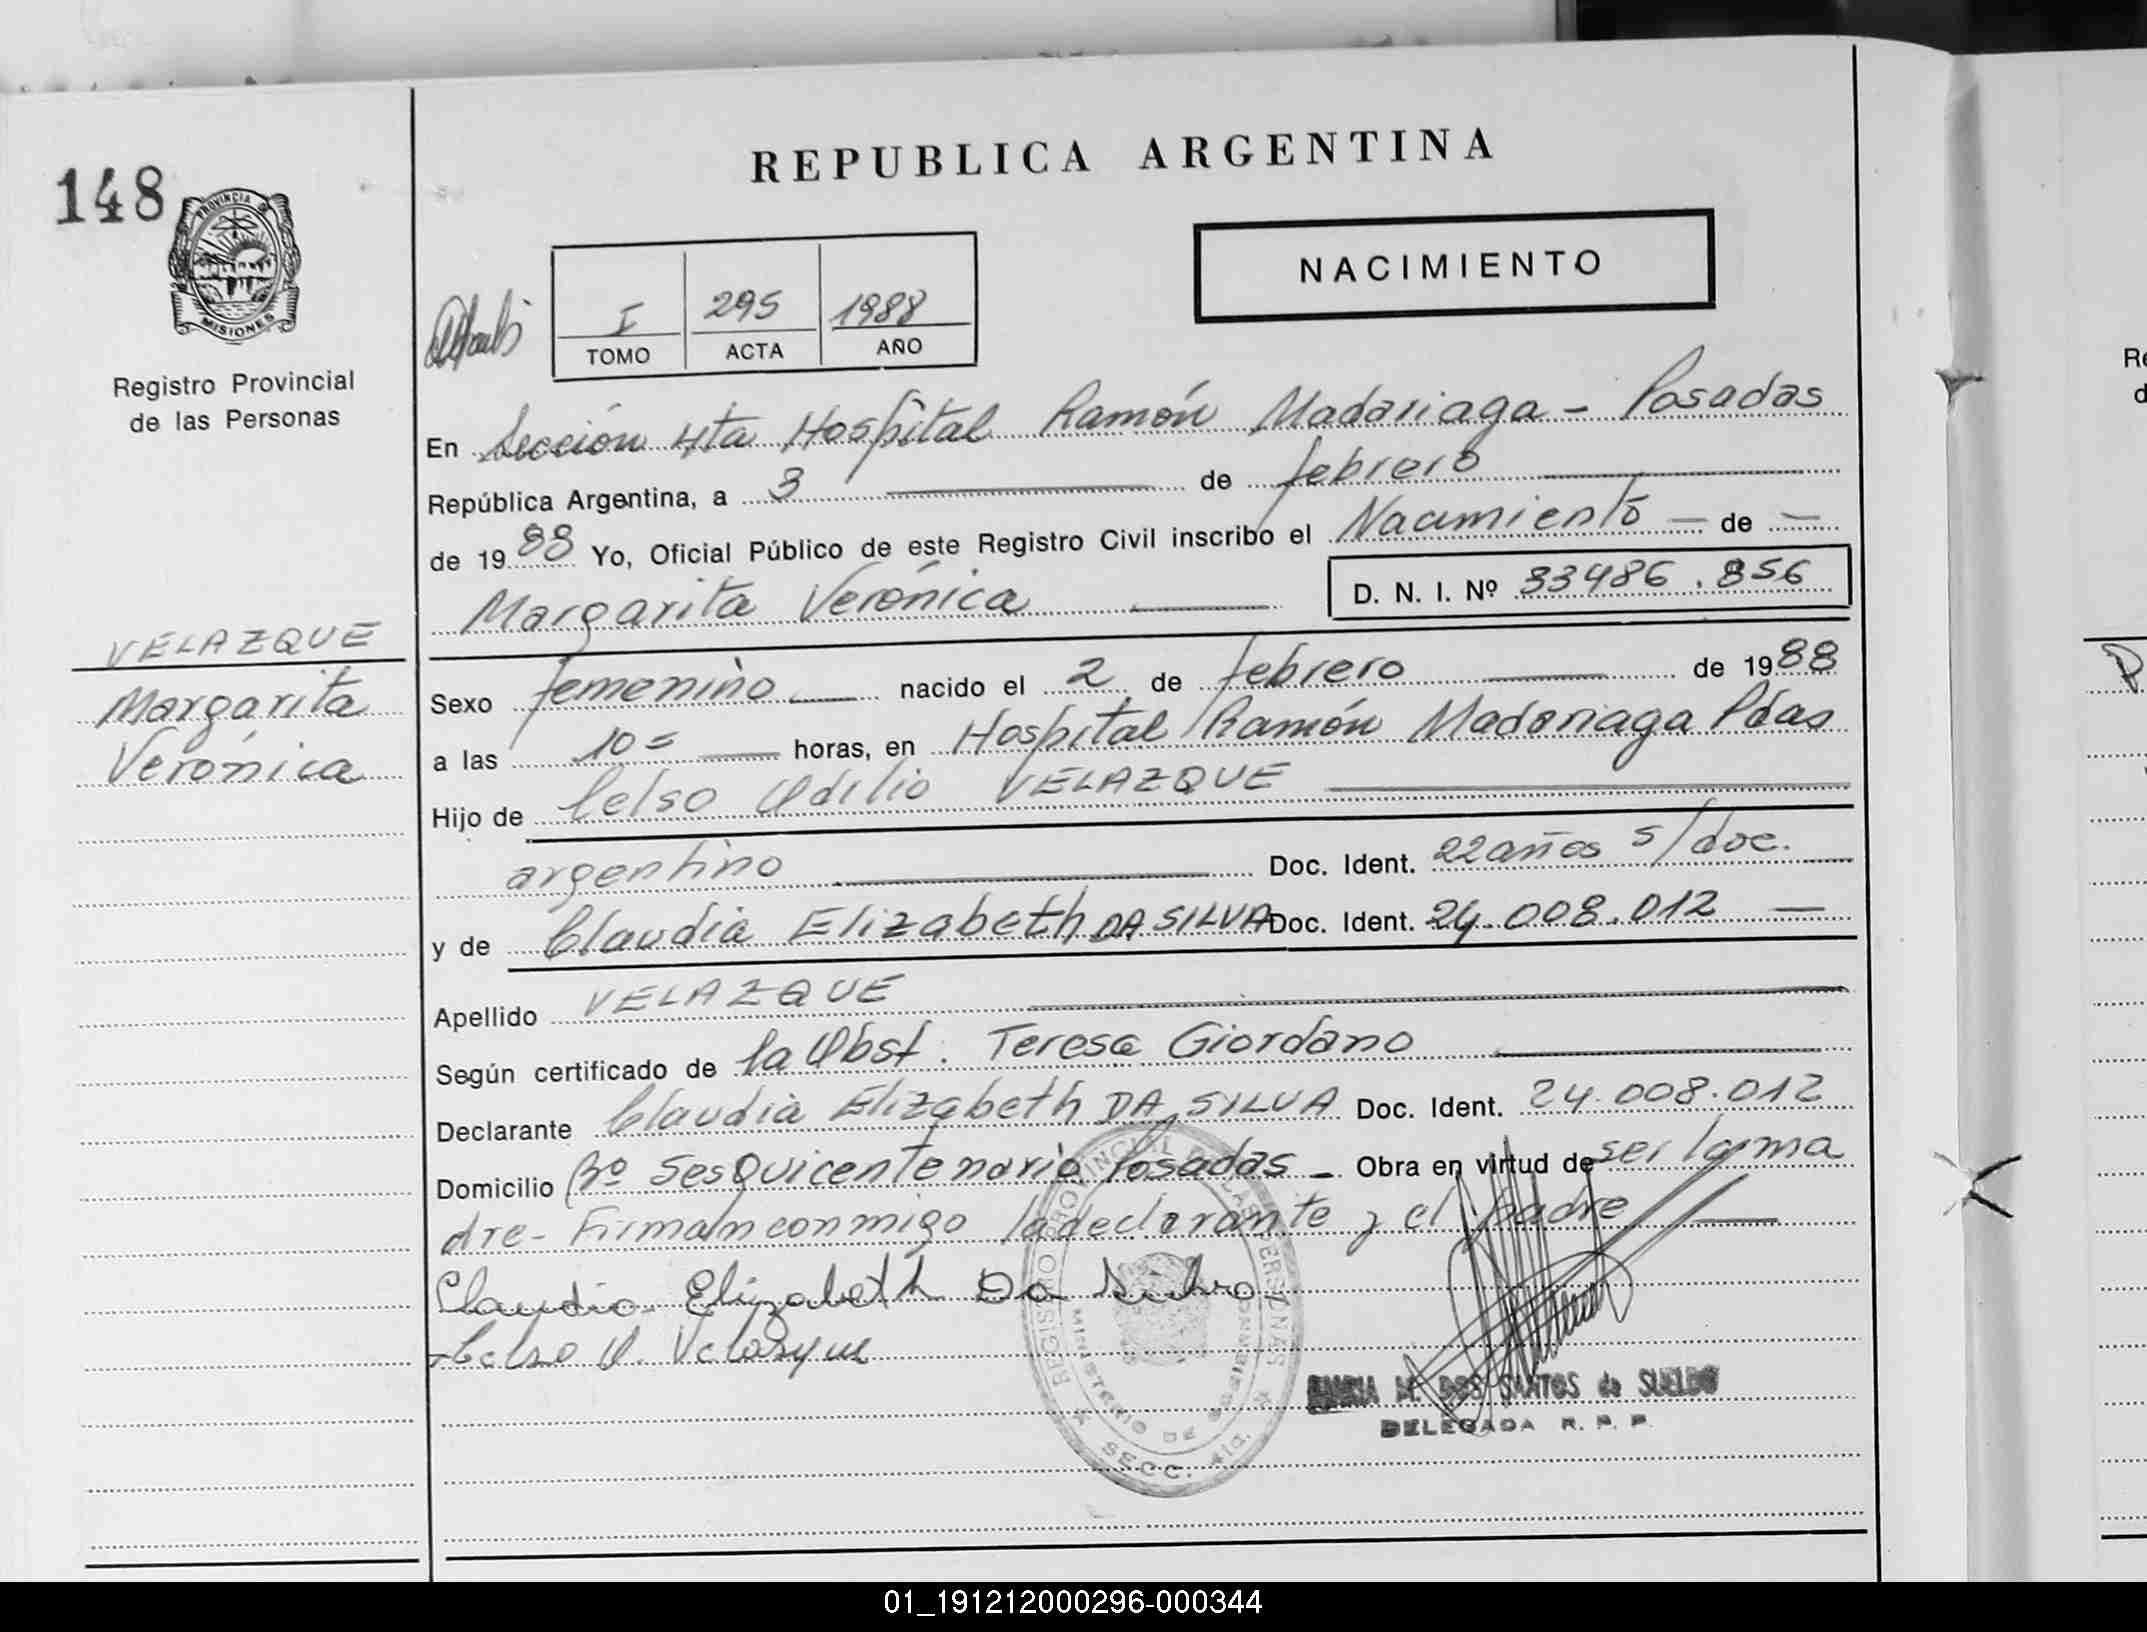 REPUBLICA ARGENTINA
148
PROVINCIA DE
MISIONES
Registro Provincial
de las Personas
NACIMIENTO
I 295 1988
TOMO ACTA AÑO
En Sección 4ta Hospital Ramón Madariaga - Posadas
República Argentina, a 3 de febrero
de 1988 Yo, Oficial Público de este Registro Civil inscribo el Nacimiento — de —
Margarita Verónica
D. N. I. Nº 33486.856
VELAZQUE
Margarita
Verónica
Sexo femenino nacido el 2 de febrero de 1988
a las 10= horas, en Hospital Ramón Madariaga Pdas
Hijo de Celso Odilio VELAZQUE
argentino Doc. Ident. 22 años s/doc.
y de Claudia Elizabeth DA SILVA Doc. Ident. 24.008.012 —
Apellido VELAZQUE
Según certificado de la Obst. Teresa Giordano
Declarante Claudia Elizabeth DA SILVA Doc. Ident. 24.008.012
Domicilio Bº SesQuicentenario Posadas - Obra en virtud de ser la ma
dre - Firman conmigo la declarante y el padre
Claudia Elizabeth Da Silva
Celso O. Velazque
REGISTRO PROVINCIAL DE LAS PERSONAS
MINISTERIO DE GOBIERNO
SECC. 4ta.
M. DOS SANTOS de SUELDO
DELEGADA R. P. P.
01_191212000296-000344